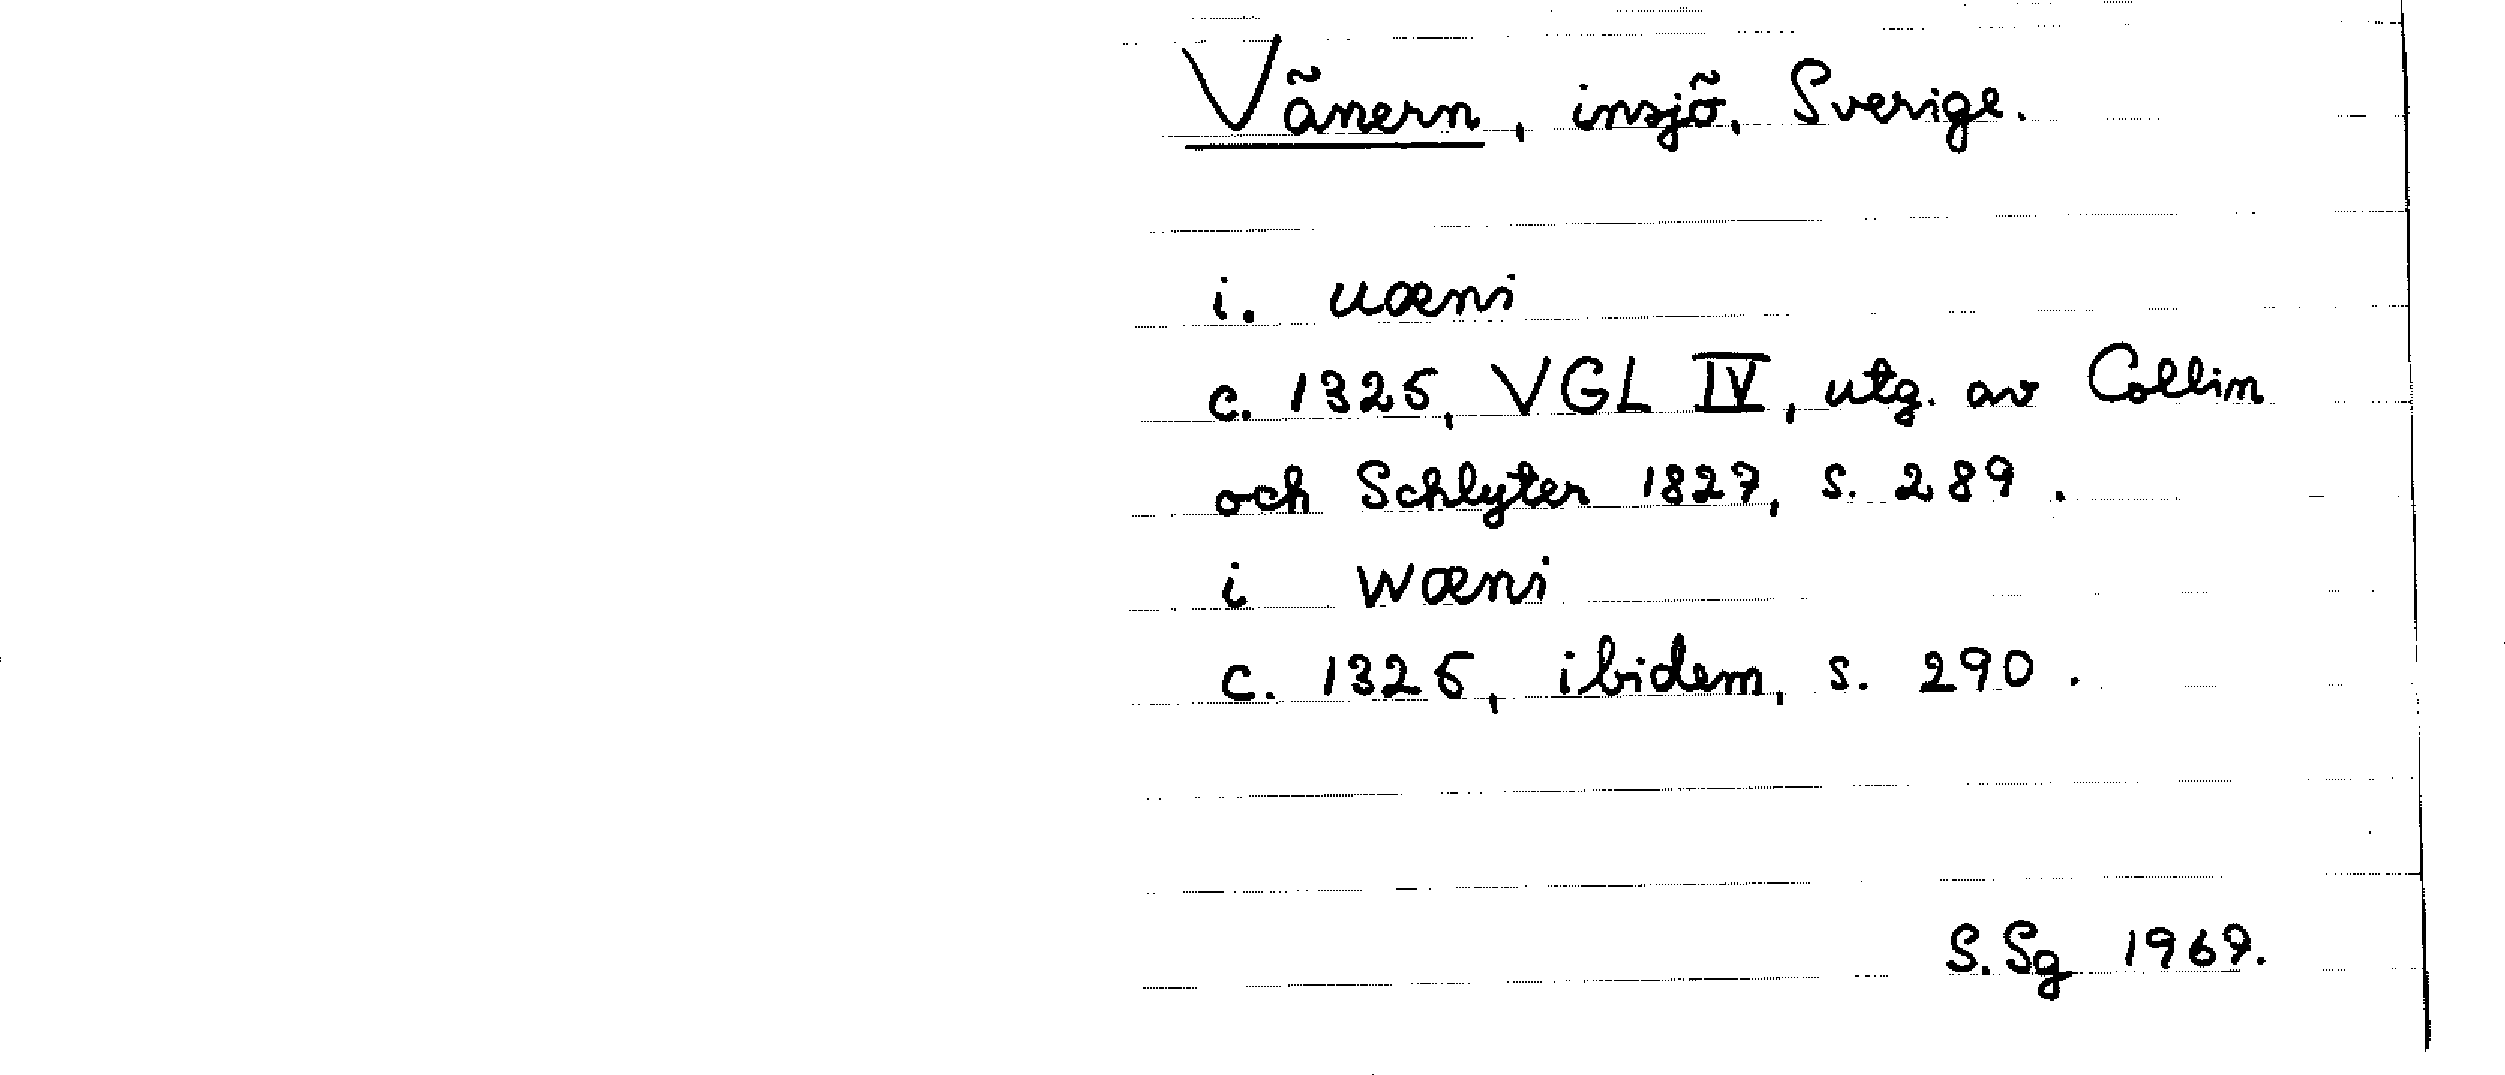 Vänern, insjö, Sverige.
i. uæni
c. 1325, VGL IV, utg. av Collin
och Schlyter 1827, s. 289.
i wæni
c. 1325, ibidem, s. 290.
S.Sg 1969.